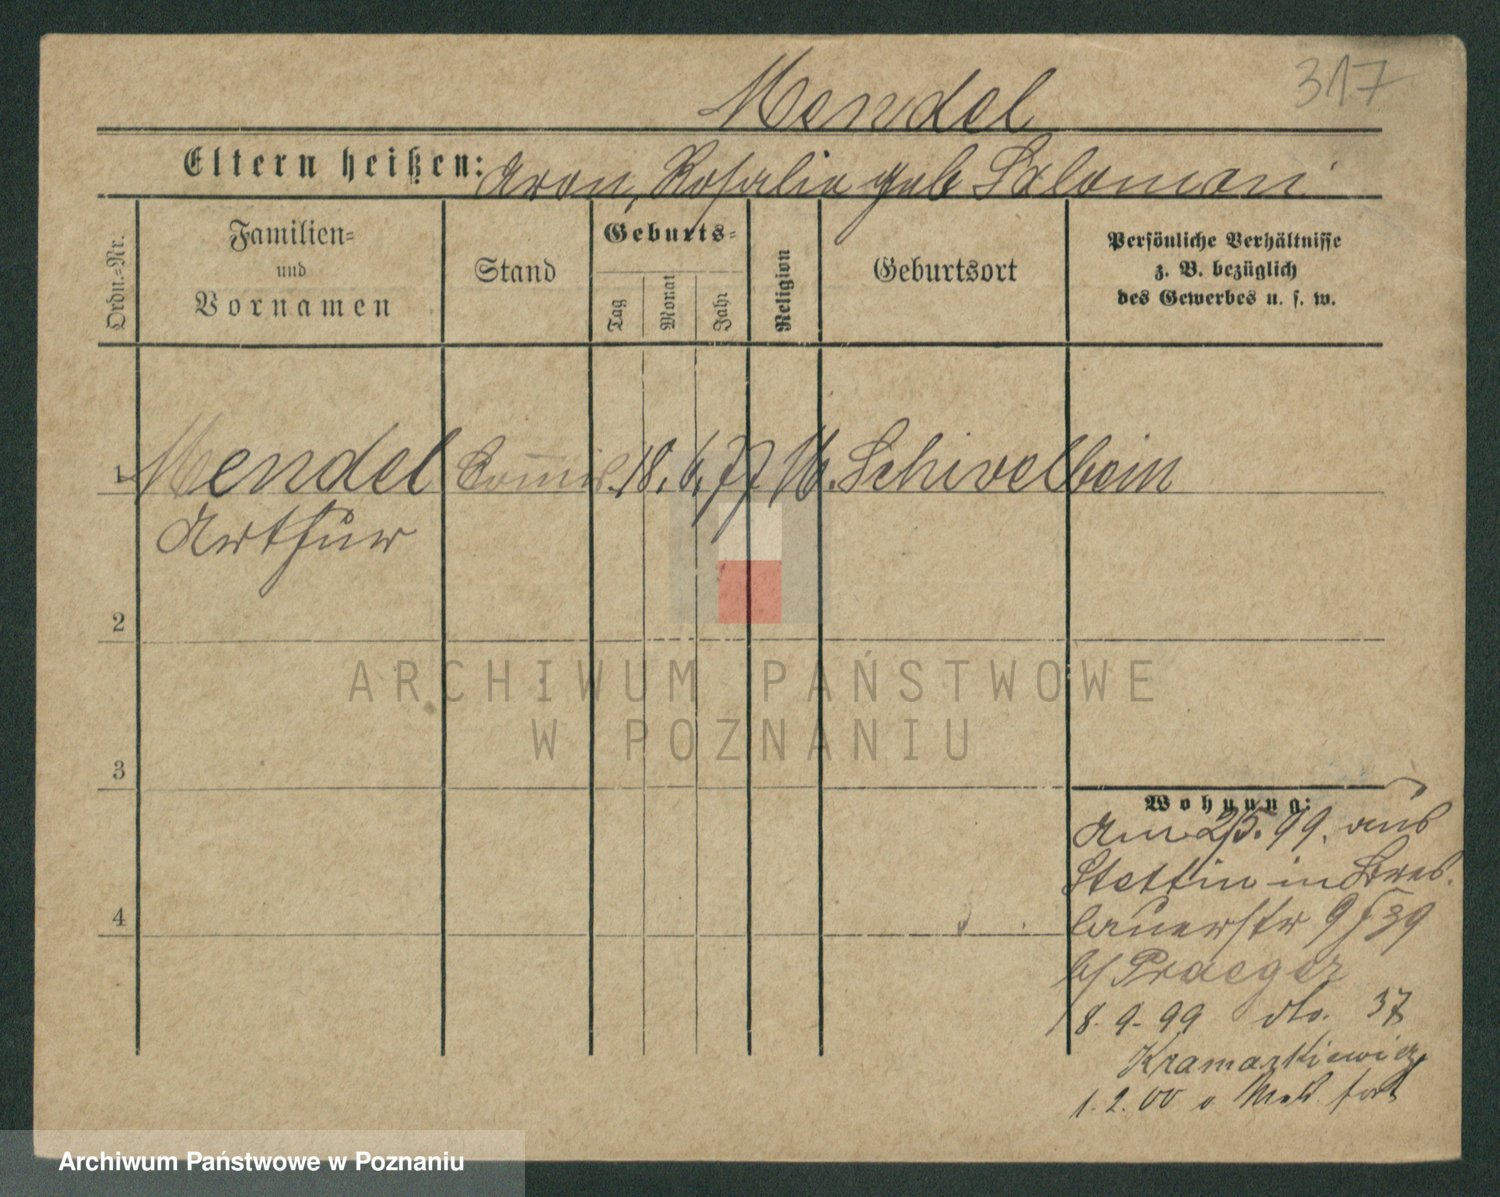 317
Mendel
Eltern heißen: Aron, Rosalie geb Salomon
Ordn.=Nr.
Familien=
und
Vornamen
Stand
Geburts=
Tag
Monat
Jahr
Religion
Geburtsort
Persönliche Verhältnisse
z. B. bezüglich
des Gewerbes u. s. w.
1 Mendel Commis 18. 6. 77 M. Schivelbein
Arthur
2
ARCHIWUM PAŃSTWOWE
W POZNANIU
3
4
Wohnung:
Am 2/5. 99. aus
Stettin in Bres.
lauerstr 9 39
b/ Praeger
18. 9. 99 dto. 37
Kramarkiewicz
1. 2. 00 o fort
Archiwum Państwowe w Poznaniu